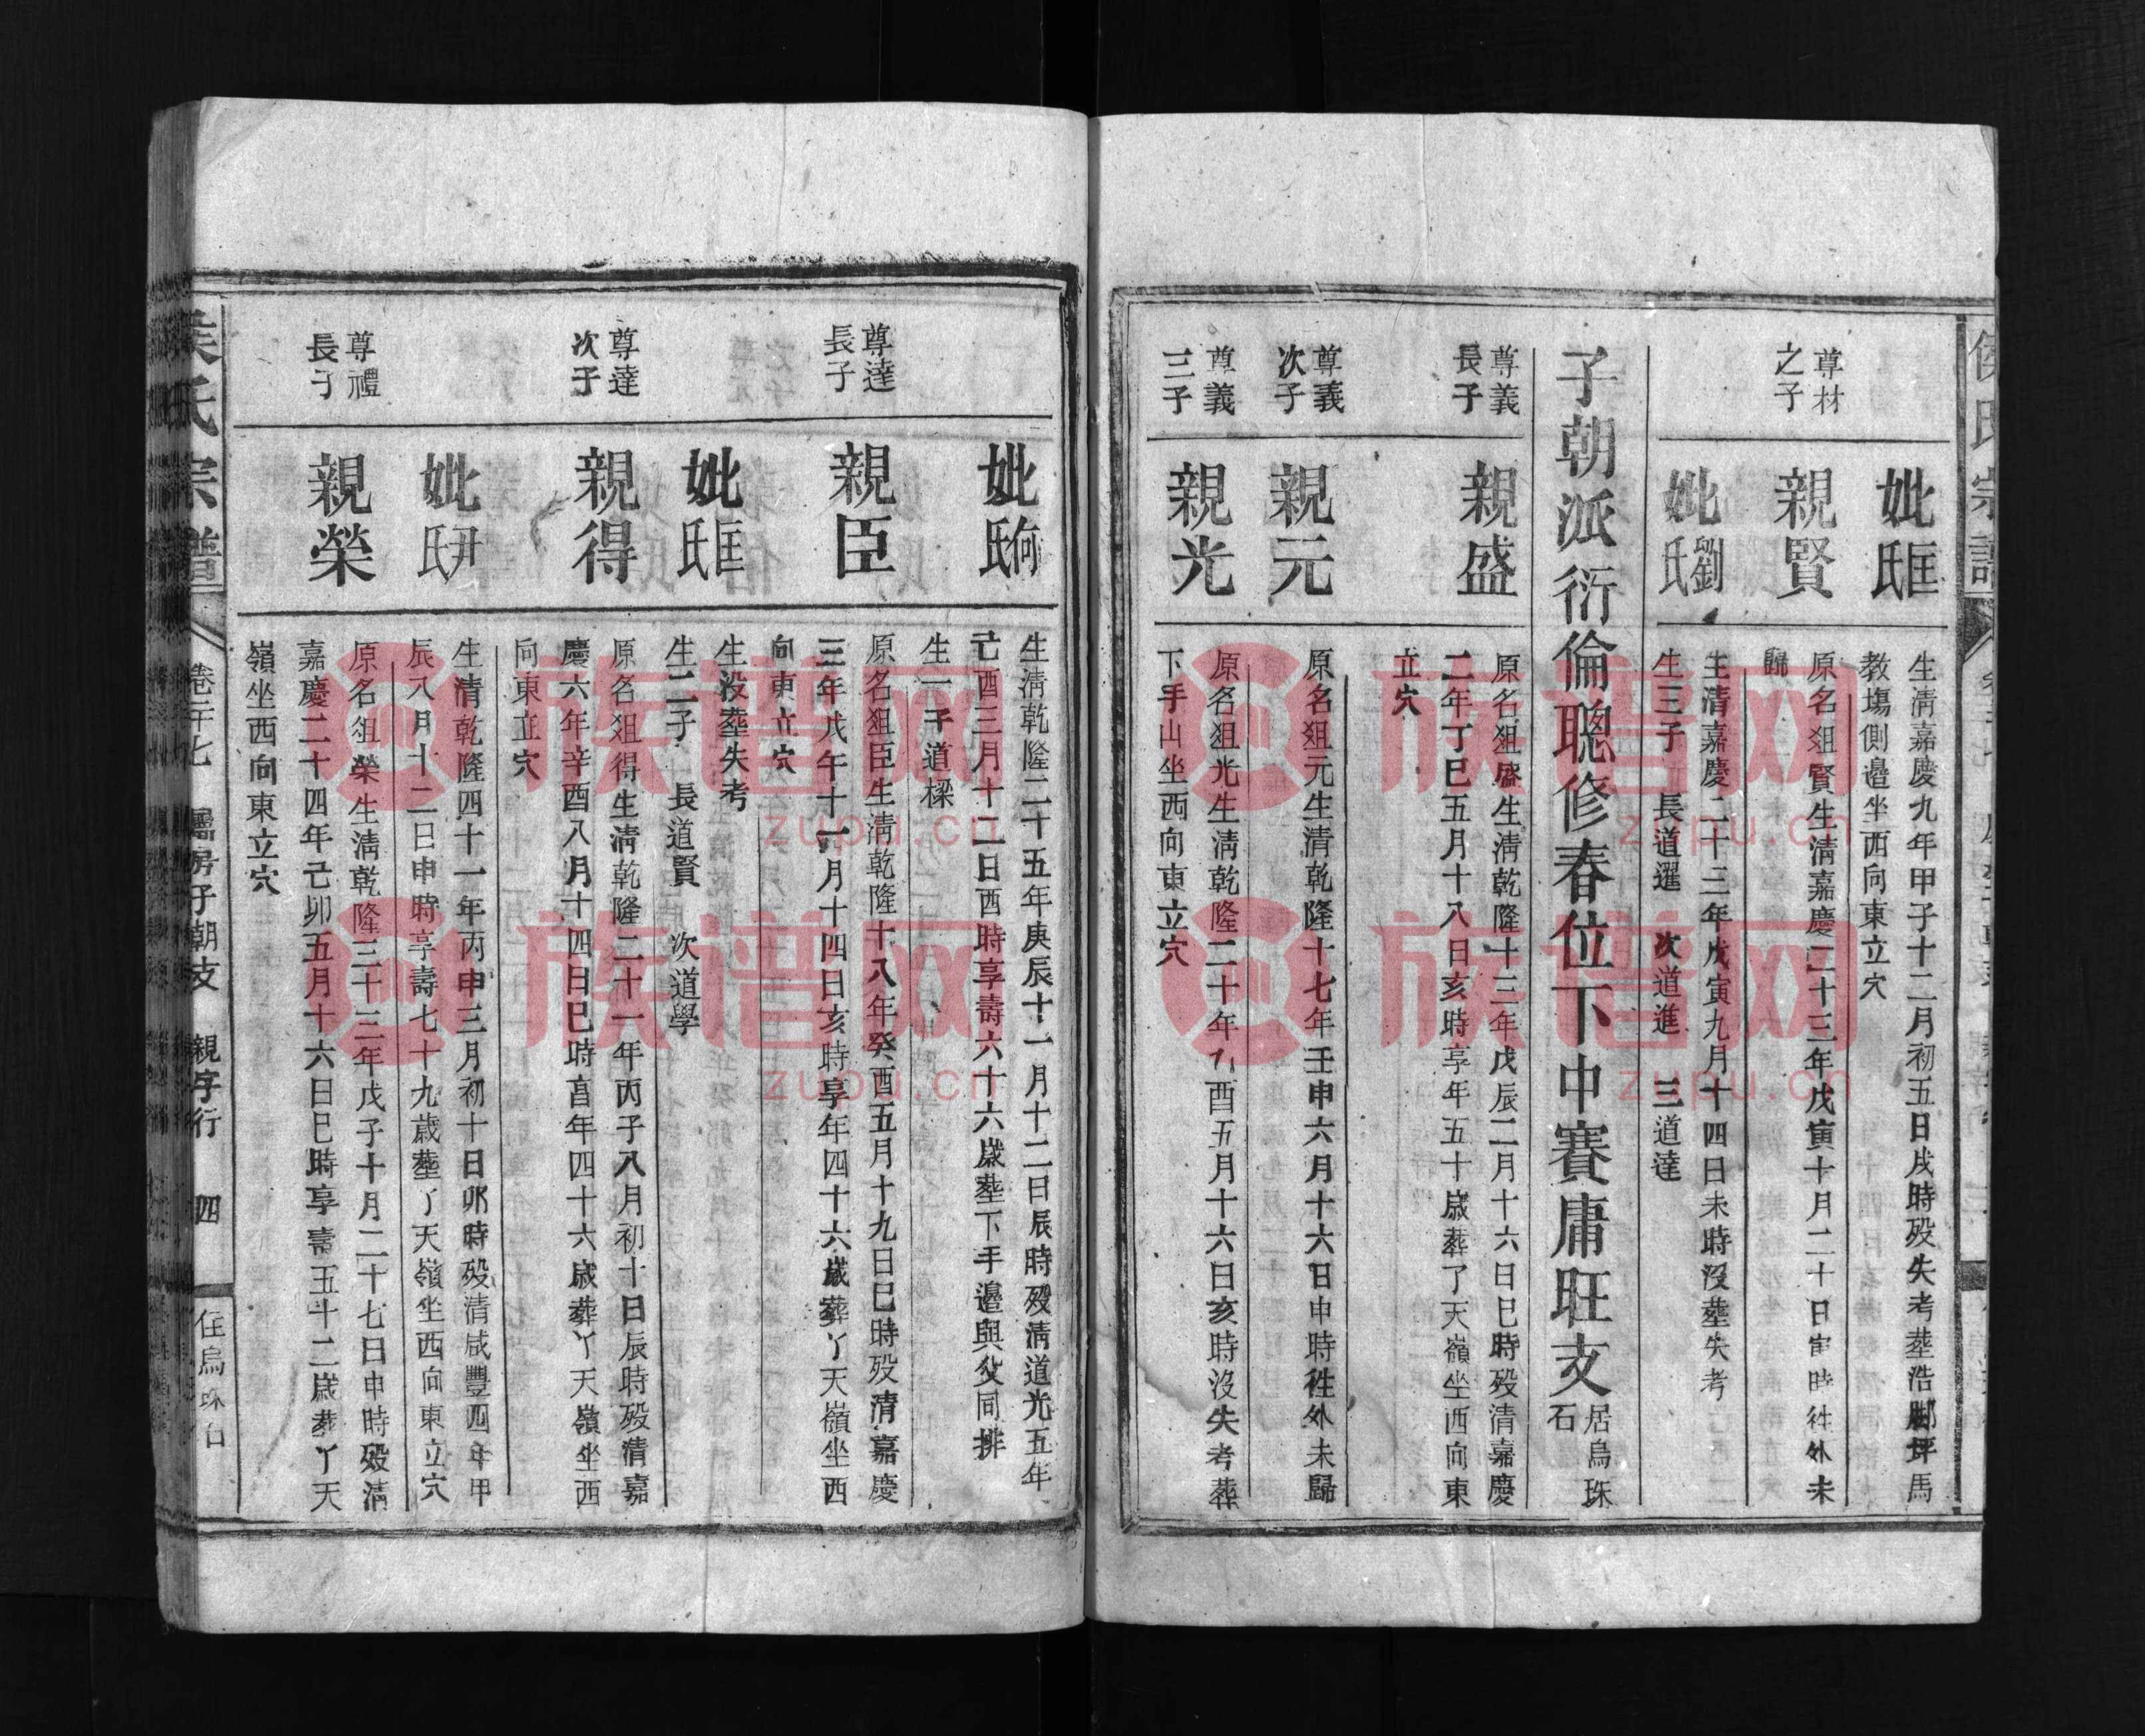 侯氏宗譜
妣匡氏
生清嘉慶九年甲子十二月初五日戌時殁失考塟浩腳坪馬
教塲側邉坐西向東立穴
尊材
之子
親賢
原名狙賢生清嘉慶二十三年戊寅十月二十日寅時往外未
歸
妣劉氏
生清嘉慶二十三年戊寅九月十四日未時沒塟失考
生三子 長道暹 次道進 三道達
子朝派衍倫聰修春位下中賽庸旺支
居烏珠
石
尊義
長子
親盛
原名狙盛生清乾隆十三年戊辰二月十六日巳時殁清嘉慶
二年丁巳五月十八日亥時享年五十歲葬了天嶺坐西向東
立穴
尊義
次子
親元
原名狙元生清乾隆十七年壬申六月十六日申時徃外未歸
尊義
三子
親光
原名狙光生清乾隆二十年酉五月十六日亥時沒失考葬
下手山坐西向東立穴
妣氏
生清乾隆二十五年庚辰十一月十二日辰時殁清道光五年
乙酉三月十二日酉時享壽六十六歲塟下手邉與父同排
生一子道樑
尊達
長子
親臣
原名狙臣生清乾隆十八年癸酉五月十九日巳時殁清嘉慶
三年戊午十一月十四日亥時享年四十六歲葬丫天嶺坐西
向東立穴
妣匡氏
生沒塟失考
生二子 長道賢 次道學
尊達
次子
親得
原名狙得生清乾隆二十一年丙子八月初十日辰時殁清嘉
慶六年辛酉八月十四日巳時享年四十六歲葬丫天嶺坐西
向東立穴
妣尹氏
生清乾隆四十一年丙申三月初十日卯時殁清咸豐四年甲
辰八月十二日申時享壽七十九歲塟丫天嶺坐西向東立穴
尊禮
長子
親榮
原名狙榮生清乾隆三十三年戊子十月二十七日申時殁清
嘉慶二十四年己卯五月十六日巳時享壽五十二歲葬丫天
嶺坐西向東立穴
侯氏宗譜 卷二十七 房子朝支 親字行 四 住烏珠石
族谱网
zupu.cn
族谱网
zupu.cn
族谱网
zupu.cn
族谱网
zupu.cn